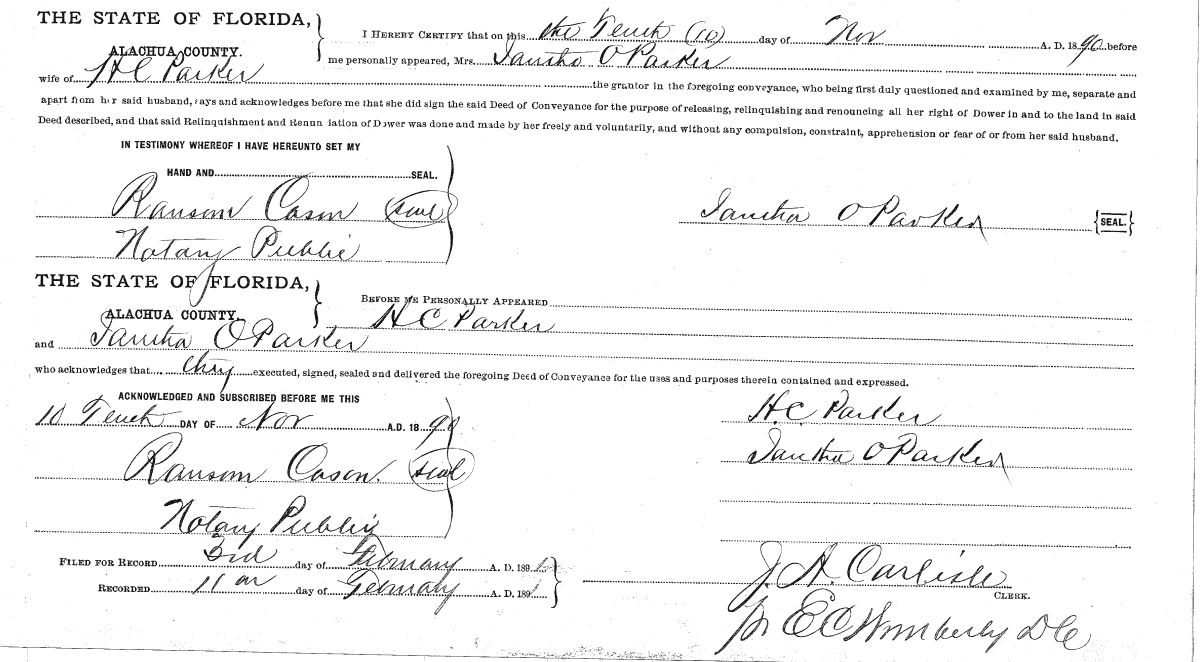 THE STATE OF FLORIDA,
ALACHUA COUNTY.
I HEREBY CERTIFY that on this the Tenth (10) day of Nov A. D. 1890 before
me personally appeared, Mrs. Iantha O Parker
wife of H C Parker the grantor in the foregoing conveyance, who being first duly questioned and examined by me, separate and
apart from her said husband, says and acknowledges before me that she did sign the said Deed of Conveyance for the purpose of releasing, relinquishing and renouncing all her right of Dower in and to the land in said
Deed described, and that said Relinquishment and Renunciation of Dower was done and made by her freely and voluntarily, and without any compulsion, constraint, apprehension or fear of or from her said husband.
IN TESTIMONY WHEREOF I HAVE HEREUNTO SET MY
HAND AND SEAL.
Ransom Cason (seal)
Iantha O Parker {SEAL.}
Notary Public
THE STATE OF FLORIDA,
ALACHUA COUNTY.
BEFORE ME PERSONALLY APPEARED
H C Parker
and Iantha O Parker
who acknowledges that they executed, signed, sealed and delivered the foregoing Deed of Conveyance for the uses and purposes therein contained and expressed.
ACKNOWLEDGED AND SUBSCRIBED BEFORE ME THIS
10 Tenth DAY OF Nov A.D. 1890
H. C. Parker
Iantha O Parker
Ransom Cason. (seal)
Notary Public
FILED FOR RECORD 3rd day of February A. D. 1891
RECORDED 11 day of February A. D. 1891
J. A. Carlisle
CLERK.
pr E C Wimberly D C